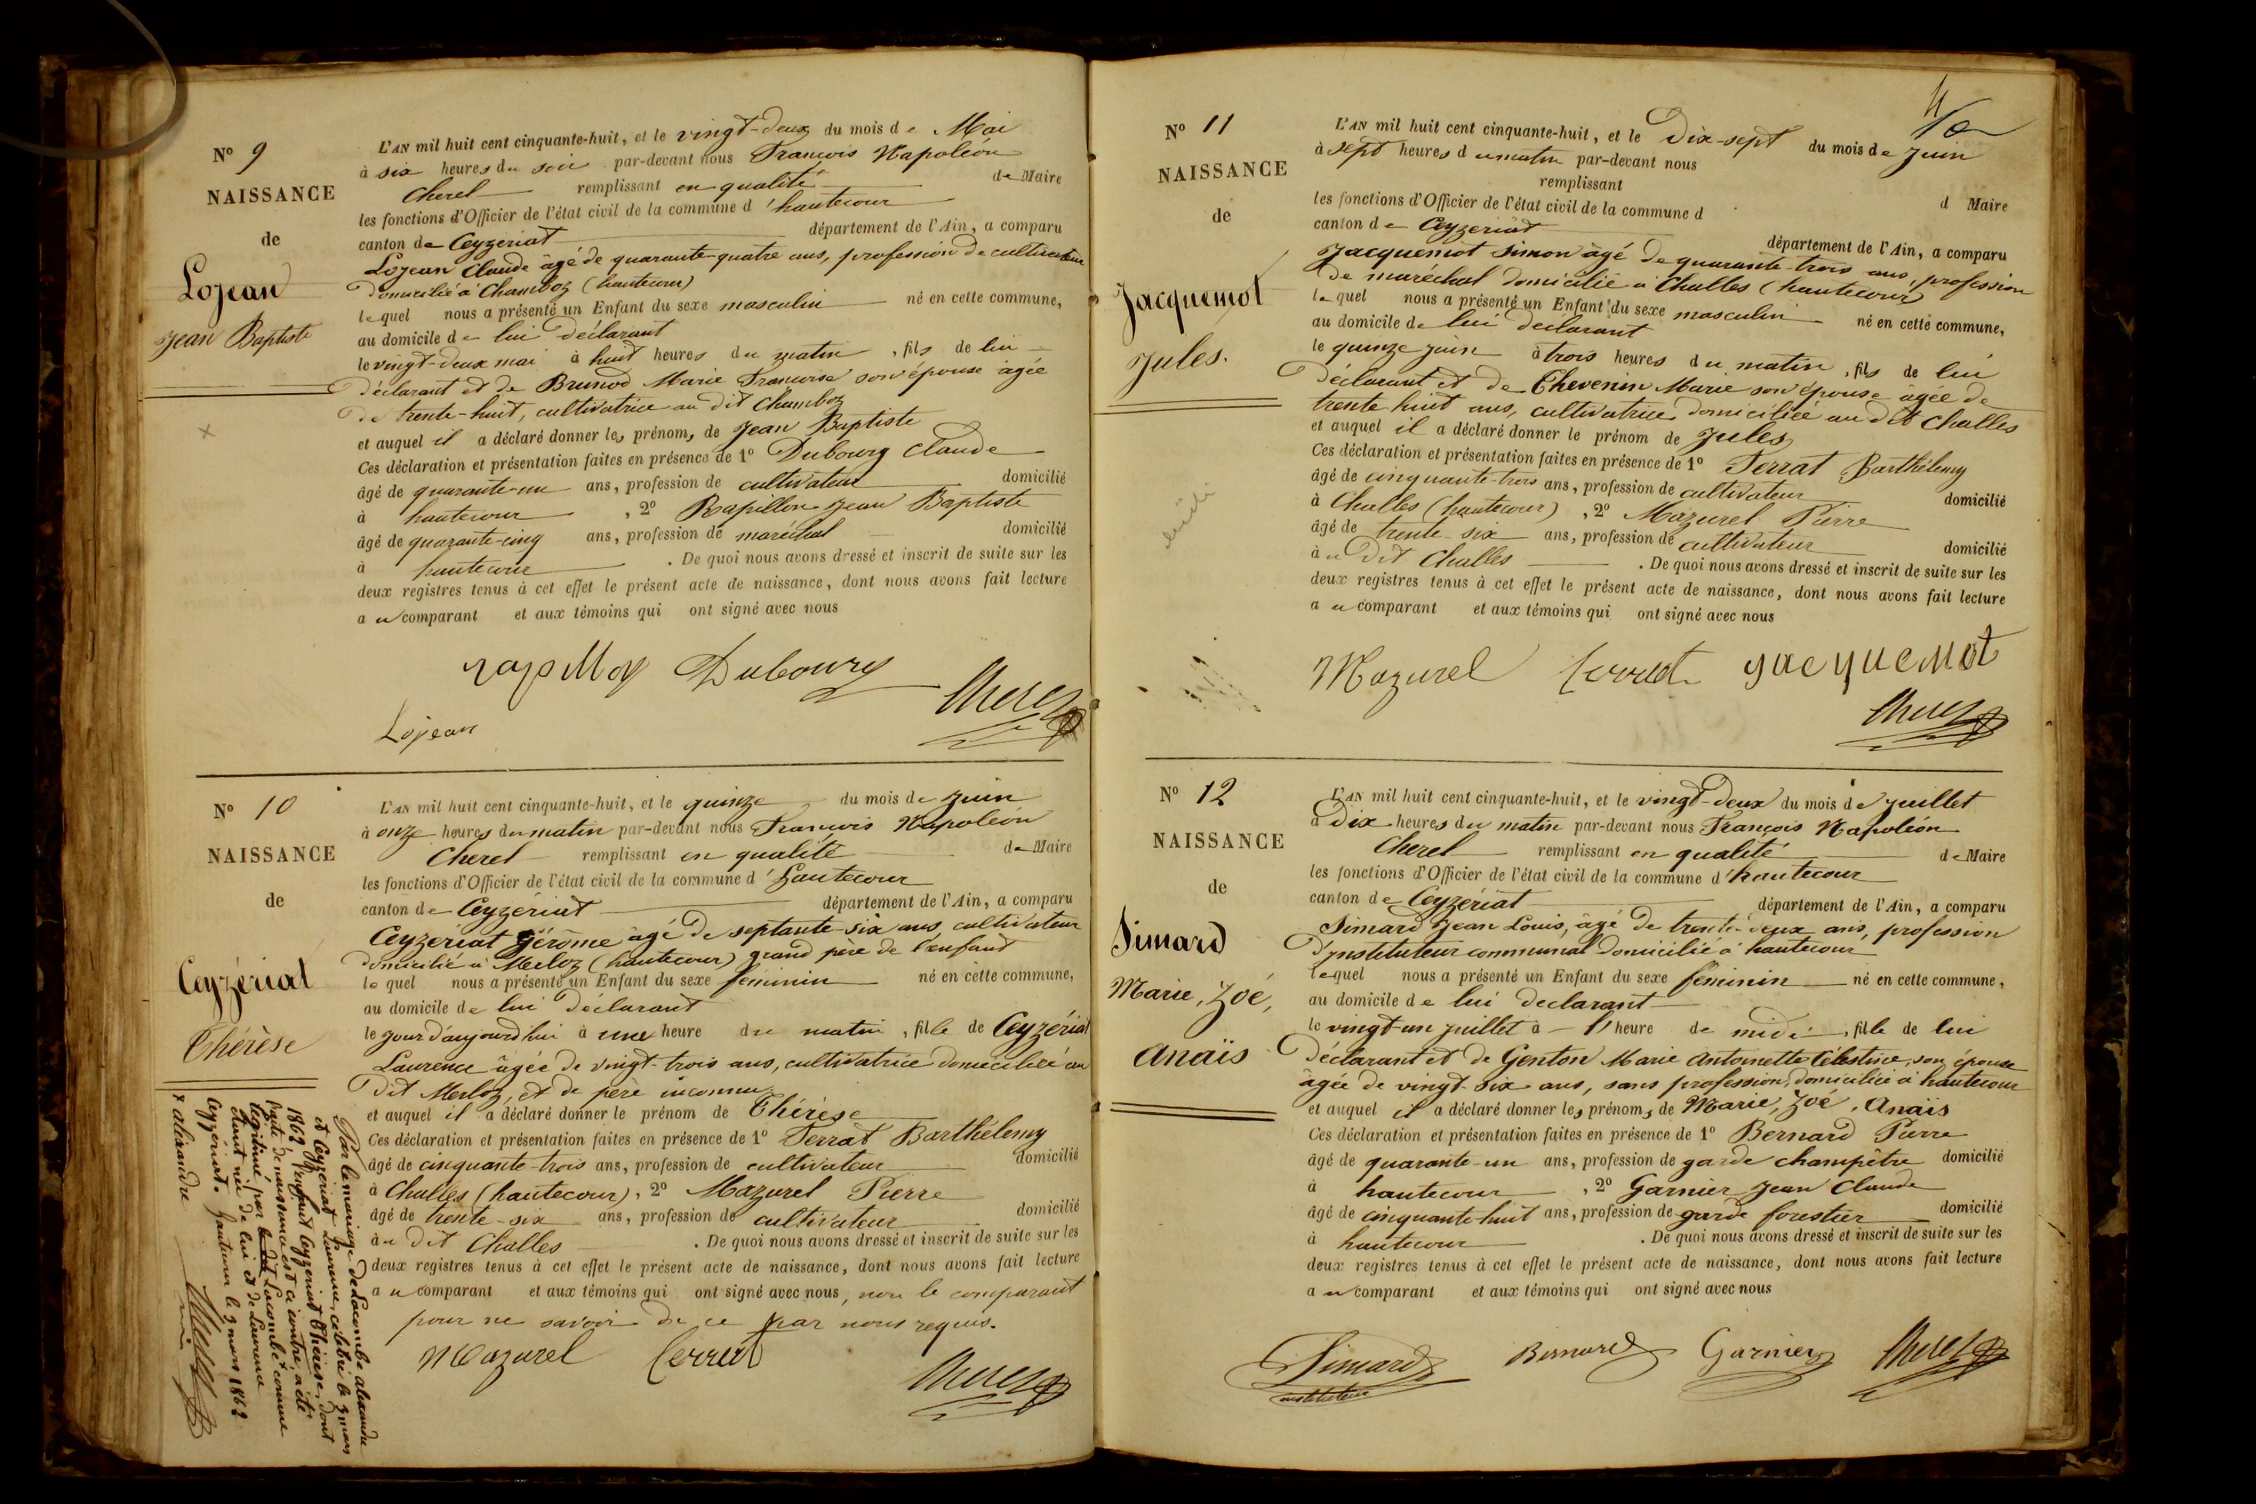 N° 9
NAISSANCE
de
Lojean
Jean Baptiste
L'AN mil huit cent cinquante-huit, et le vingt-deux du mois de Mai
à six heures du soir par-devant nous François Napoléon
Cherel remplissant en qualité de Maire
les fonctions d'Officier de l'état civil de la commune d'hautecour
canton de Ceyzériat département de l'Ain, a comparu
Lojean Claude âgé de quarante-quatre ans, profession de cultivateur
domicilié à Chamboz (hautecour)
lequel nous a présenté un Enfant du sexe masculin né en cette commune,
au domicile de lui déclarant
le vingt-deux mai à huit heures du matin, fils de lui
déclarant et de Brunod Marie Françoise son épouse âgée
de trente-huit, cultivatrice au dit Chamboz
et auquel il a déclaré donner les prénoms de Jean Baptiste
Ces déclaration et présentation faites en présence de 1° Dubourg Claude
âgé de quarante-un ans, profession de cultivateur domicilié
à hautecour, 2° Rapillon Jean Baptiste
âgé de quarante-cinq ans, profession de maréchal domicilié
à hautecour. De quoi nous avons dressé et inscrit de suite sur les
deux registres tenus à cet effet le présent acte de naissance, dont nous avons fait lecture
au comparant et aux témoins qui ont signé avec nous
Dubourg
Cherel
Lojean
N° 10
NAISSANCE
de
Ceyzériat
Thérèse
L'AN mil huit cent cinquante-huit, et le quinze du mois de Juin
à onze heures du matin par-devant nous François Napoléon
Cherel remplissant en qualité de Maire
les fonctions d'Officier de l'état civil de la commune d'hautecour
canton de Ceyzériat département de l'Ain, a comparu
Ceyzériat Jérôme âgé de septante-six ans, cultivateur
domicilié à Merloz (hautecour) grand père de l'enfant
lequel nous a présenté un Enfant du sexe féminin né en cette commune,
au domicile de lui déclarant
le jour d'aujourd'hui à une heure du matin, fille de Ceyzériat
Laurence âgée de vingt-trois ans, cultivatrice domiciliée au
dit Merloz, et de père inconnu
et auquel il a déclaré donner le prénom de Thérèse
Ces déclaration et présentation faites en présence de 1° Ferrat Barthélemy
âgé de cinquante-trois ans, profession de cultivateur domicilié
à Challes (hautecour), 2° Mazurel Pierre
âgé de trente-six ans, profession de cultivateur domicilié
au dit Challes. De quoi nous avons dressé et inscrit de suite sur les
deux registres tenus à cet effet le présent acte de naissance, dont nous avons fait lecture
au comparant et aux témoins qui ont signé avec nous, non le comparant
pour ne savoir de ce par nous requis.
Mazurel Ferrat
Cherel
Par le mariage de Lacombe alexandre
et Ceyzériat Laurence, célébré le 9 mars
1862, l'enfant Ceyzériat Thérèse, dont
l'acte de naissance est ci contre, a été
légitimé par le dit Lacombe x comme
étant née de lui et de Laurence
Ceyzériat. hautecour le 9 mars 1862
x alexandre
Cherel
N° 11
NAISSANCE
de
Jacquemot
Jules.
L'AN mil huit cent cinquante-huit, et le Dix-sept du mois de Juin
à sept heures du matin par-devant nous
remplissant d Maire
les fonctions d'Officier de l'état civil de la commune d
canton de Ceyzériat département de l'Ain, a comparu
Jacquemot Simon âgé de quarante-trois ans, profession
de maréchal domicilié à Challes (hautecour)
lequel nous a présenté un Enfant du sexe masculin né en cette commune,
au domicile de lui déclarant
le quinze Juin à trois heures du matin, fils de lui
déclarant et de Thevenin Marie son épouse âgée de
trente huit ans, cultivatrice domiciliée au dit Challes
et auquel il a déclaré donner le prénom de Jules
Ces déclaration et présentation faites en présence de 1° Ferrat Barthélemy
âgé de cinquante-trois ans, profession de cultivateur domicilié
à Challes (hautecour), 2° Mazurel Pierre
âgé de trente-six ans, profession de cultivateur domicilié
au dit Challes. De quoi nous avons dressé et inscrit de suite sur les
deux registres tenus à cet effet le présent acte de naissance, dont nous avons fait lecture
au comparant et aux témoins qui ont signé avec nous
Mazurel Ferrat Jacquemot
Cherel
N° 12
NAISSANCE
de
Simard
Marie, Zoé,
Anaïs
L'AN mil huit cent cinquante-huit, et le vingt-deux du mois de Juillet
à Dix heures du matin par-devant nous François Napoléon
Cherel remplissant en qualité de Maire
les fonctions d'Officier de l'état civil de la commune d'hautecour
canton de Ceyzériat département de l'Ain, a comparu
Simard Jean Louis, âgé de trente-deux ans, profession
d'Instituteur communal domicilié à hautecour
lequel nous a présenté un Enfant du sexe féminin né en cette commune,
au domicile de lui déclarant
le vingt-un Juillet à 1 heure de midi, fille de lui
déclarant et de Genton Marie Antoinette Célestine, son épouse
âgée de vingt-six ans, sans profession, domiciliée à hautecour
et auquel il a déclaré donner les prénoms de Marie, Zoé, Anaïs
Ces déclaration et présentation faites en présence de 1° Bernard Pierre
âgé de quarante-un ans, profession de garde champêtre domicilié
à hautecour, 2° Garnier Jean Claude
âgé de cinquante-huit ans, profession de garde forestier domicilié
à hautecour. De quoi nous avons dressé et inscrit de suite sur les
deux registres tenus à cet effet le présent acte de naissance, dont nous avons fait lecture
au comparant et aux témoins qui ont signé avec nous
Simard Bernard Garnier Cherel
instituteur